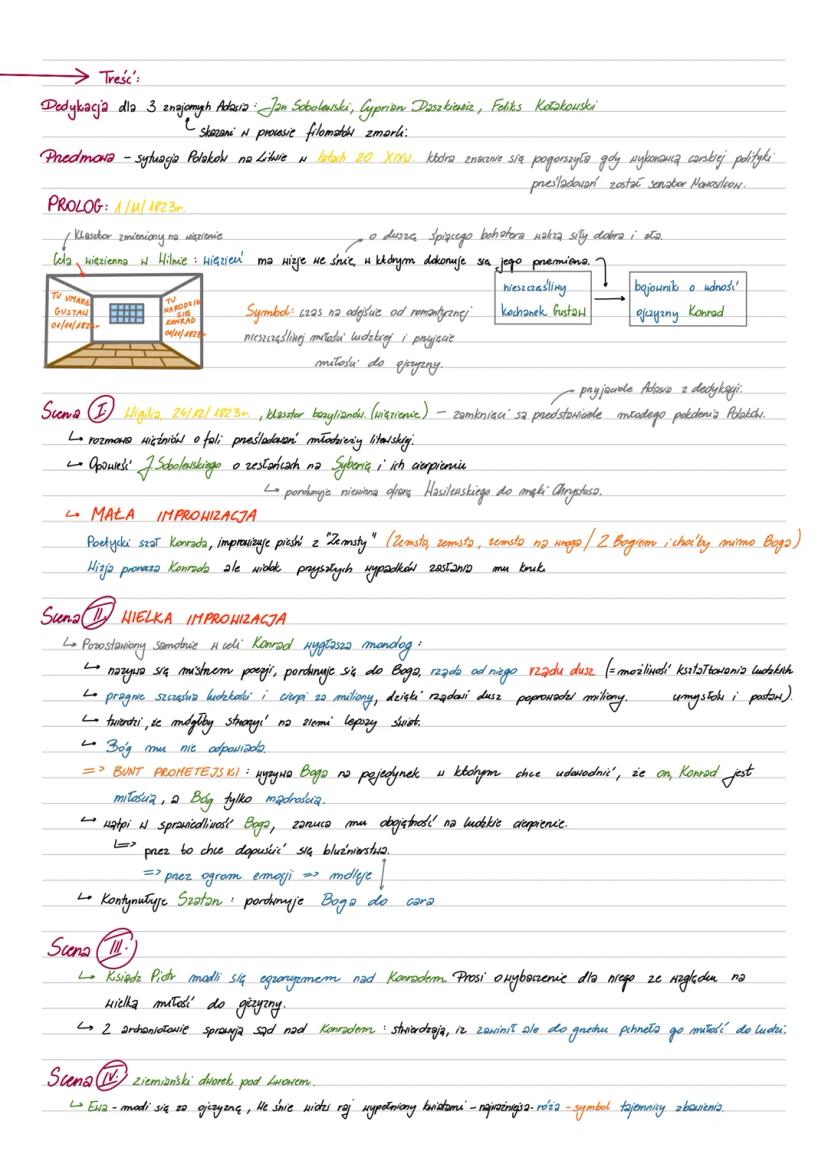 Treść:
Dedykacja dla 3 znajomych Adasia: Jan Sobolewski, Cyprian Daszkiewicz, Feliks Kołakowski
skazani w procesie filomatów zmarli.
Przedmowa - sytuacja Polaków na Litwie w latach 20 XIXw. która znacznie się pogorszyła gdy wykonawcą carskiej polityki
prześladowań został senator Nowosilcow.
PROLOG: 1/11/1823r.
Klasztor zmieniony na więzienie
o duszę śpiącego bohatera walczą siły dobra i zła.
Cela więzienna w Wilnie: więzień ma wizje we śnie, w którym dokonuje się jego przemiana.
TU UMARŁ GUSTAW 01/11/1823r
TU NARODZIŁ SIĘ KONRAD 01/11/1823r
Symbol: czas na odejście od romantycznej
nieszczęśliwej miłości ludzkiej i przyjęcie
miłości do ojczyzny.
nieszczęśliwy
kochanek Gustaw
bojownik o wolność
ojczyzny Konrad
przyjaciele Adasia z dedykacji.
Scena I. Wigilia, 24/12/1823r., klasztor bazylianów. (więzienie) - zamknięci są przedstawiciele młodego pokolenia Polaków.
↳ rozmowa więźniów o fali prześladowań młodzieży litewskiej.
↳ Opowieść J.Sobolewskiego o zesłańcach na Syberię i ich cierpieniu
↳ porównuje niewinną ofiarę Wasilewskiego do męki Chrystusa.
↳ MAŁA IMPROWIZACJA
Poetycki szał Konrada, improwizuje pieśń z "Zemsty" (Zemsta, zemsta, zemsta na wroga / Z Bogiem i choćby mimo Boga)
Wizja prorocza Konrada ale widok przyszłych wypadków zasłania mu kruk.
Scena II. WIELKA IMPROWIZACJA
↳ Pozostawiony samotnie w celi Konrad wygłasza monolog:
↳ nazywa się mistrzem poezji, porównuje się do Boga, rząda od niego rządu dusz (= możliwość kształtowania ludzkich
↳ pragnie szczęścia ludzkości i cierpi za miliony, dzięki rządowi dusz poprowadzi miliony. umysłów i postaw).
↳ twierdzi, że mógłby stworzyć na ziemi lepszy świat.
↳ Bóg mu nie odpowiada.
=> BUNT PROMETEJSKI: wyzywa Boga na pojedynek w którym chce udowodnić, że on, Konrad jest
miłością, a Bóg tylko mądrością.
↳ wątpi w sprawiedliwość Boga, zarzuca mu obojętność na ludzkie cierpienie.
↳> przez to chce dopuścić się bluźnierstwa.
=> przez ogrom emocji => mdleje
↳ Kontynułuje Szatan: porównuje Boga do cara
Scena III.
↳ Ksiądz Piotr modli się egzorcyzmem nad Konradem. Prosi o wybaczenie dla niego ze względu na
wielką miłość do ojczyzny.
↳ 2 archaniołowie sprawują sąd nad Konradem: stwierdzają, iż zawinił ale do grzechu pchnęła go miłość do ludzi.
Scena IV. ziemiański dworek pod Lwowem.
↳ Ewa - modi się za ojczyznę, We śnie widzi raj wypełniony kwiatami - najważniejsza - róża - symbol tajemnicy zbawienia.